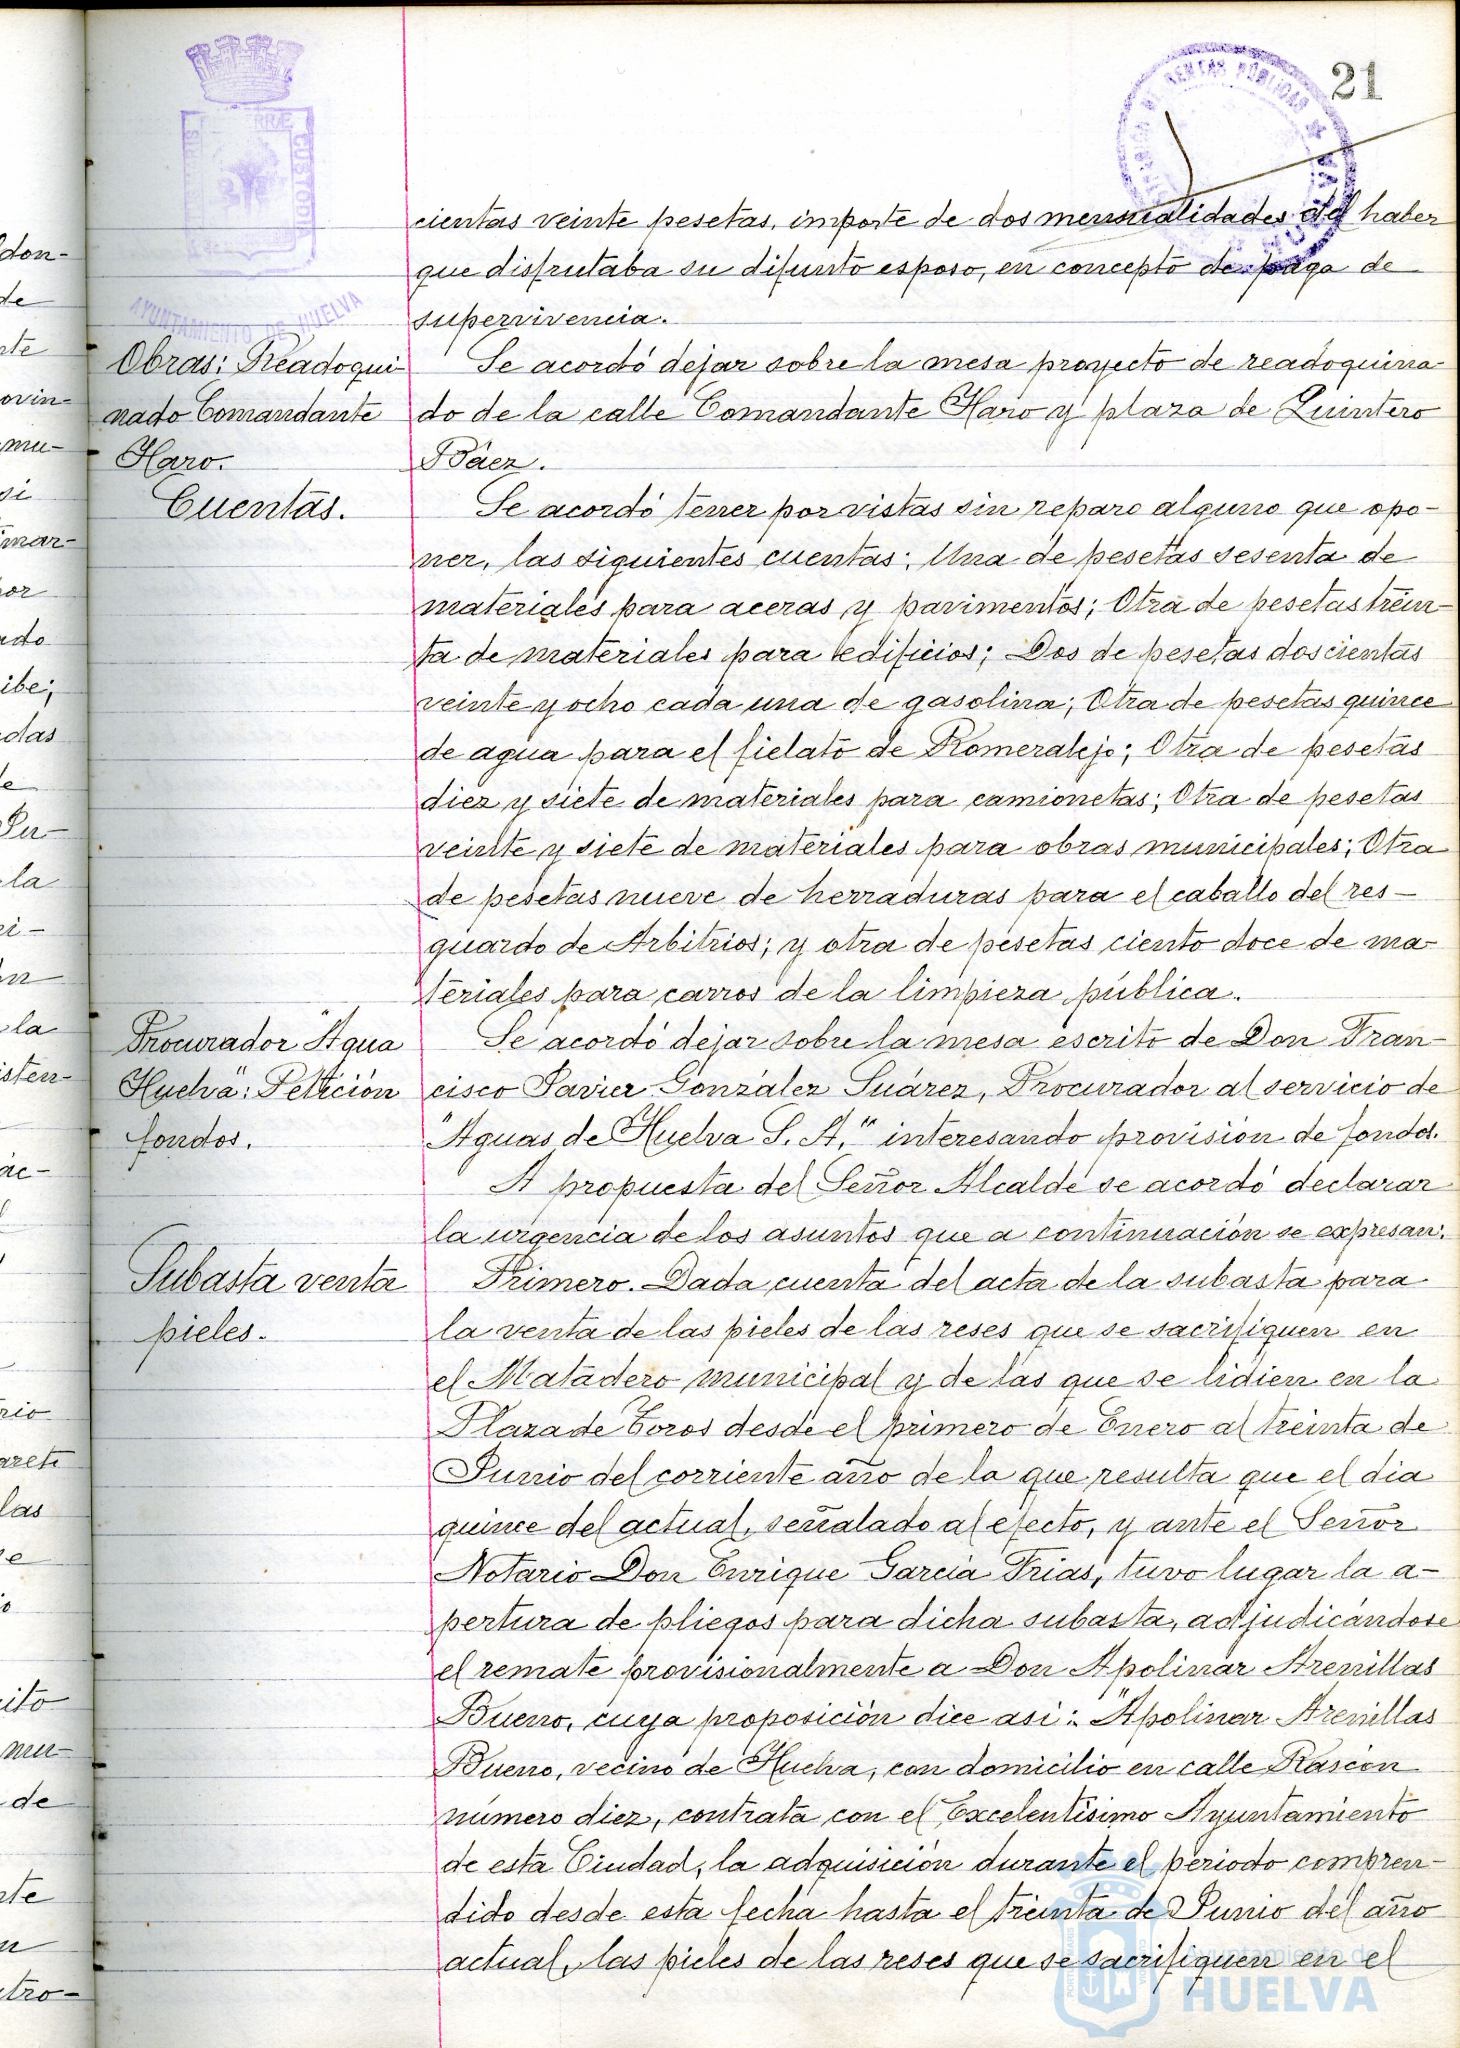 21
cientas veinte pesetas, importe de dos mensualidades del haber
que disfrutaba su difunto esposo, en concepto de paga de
supervivencia.
AYUNTAMIENTO DE HUELVA
Obras: Readoqui-
nado Comandante
Haro.
Se acordó dejar sobre la mesa proyecto de readoquina-
do de la calle Comandante Haro y plaza de Quintero
Báez.
Cuentas.
Se acordó tener por vistas sin reparo alguno que opo-
ner, las siguientes cuentas: Una de pesetas sesenta de
materiales para aceras y pavimentos; Otra de pesetas trein-
ta de materiales para edificios; Dos de pesetas doscientas
veinte y ocho cada una de gasolina; Otra de pesetas quince
de agua para el fielato de Romeralejo; Otra de pesetas
diez y siete de materiales para camionetas; Otra de pesetas
veinte y siete de materiales para obras municipales; Otra
de pesetas nueve de herraduras para el caballo del res-
guardo de Arbitrios; y otra de pesetas ciento doce de ma-
teriales para carros de la limpieza pública.
Procurador "Agua
Huelva": Petición
fondos.
Se acordó dejar sobre la mesa escrito de Don Fran-
cisco Javier González Suárez, Procurador al servicio de
"Aguas de Huelva S. A." interesando provisión de fondos.
A propuesta del Señor Alcalde se acordó declarar
la urgencia de los asuntos que a continuación se expresan:
Subasta venta
pieles.
Primero. Dada cuenta del acta de la subasta para
la venta de las pieles de las reses que se sacrifiquen en
el Matadero municipal y de las que se lidien en la
Plaza de Toros desde el primero de Enero al treinta de
Junio del corriente año de la que resulta que el dia
quince del actual, señalado al efecto, y ante el Señor
Notario Don Enrique García Frias, tuvo lugar la a-
pertura de pliegos para dicha subasta, adjudicándose
el remate provisionalmente a Don Apolinar Arenillas
Bueno, cuya proposición dice asi: "Apolinar Arenillas
Bueno, vecino de Huelva, con domicilio en calle Rascón
número diez, contrata con el Excelentísimo Ayuntamiento
de esta Ciudad, la adquisición durante el periodo compren-
dido desde esta fecha hasta el treinta de Junio del año
actual, las pieles de las reses que se sacrifiquen en el
Ayuntamiento de
HUELVA